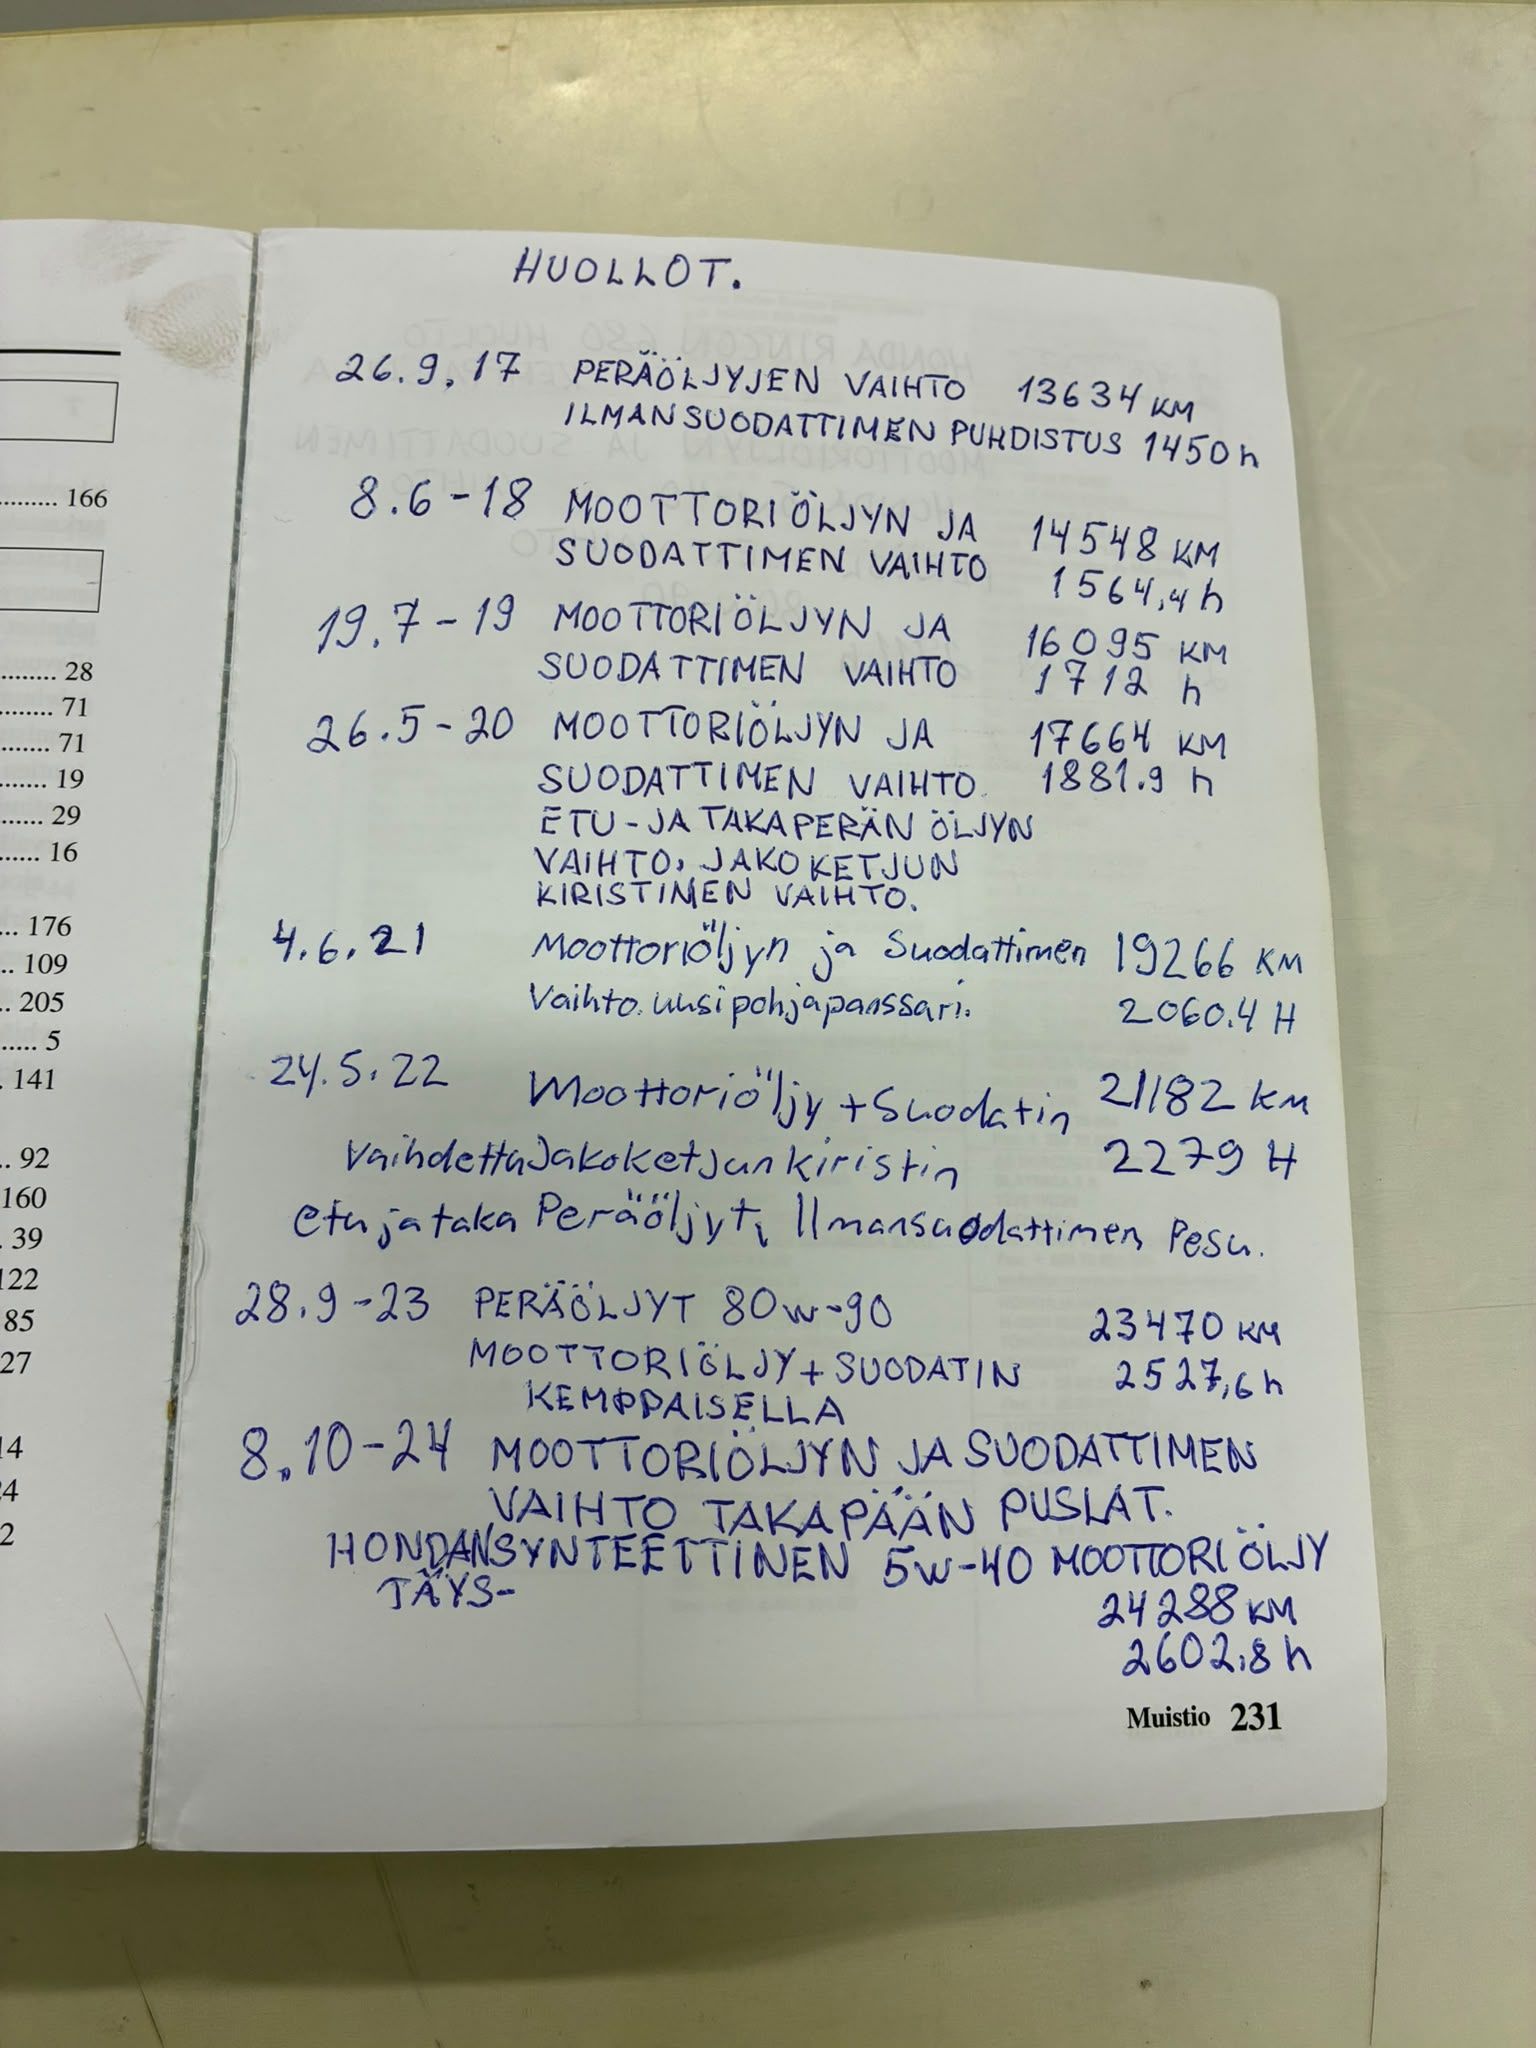 HUOLLOT.
26.9.17 PERÄÖLJYJEN VAIHTO 13634 KM
ILMANSUODATTIMEN PUHDISTUS 1450 h
8.6-18 MOOTTORIÖLJYN JA 14548 KM
SUODATTIMEN VAIHTO 1564,4 h
19.7-19 MOOTTORIÖLJYN JA 16095 KM
SUODATTIMEN VAIHTO 1712 h
26.5-20 MOOTTORIÖLJYN JA 17664 KM
SUODATTIMEN VAIHTO. 1881.9 h
ETU-JA TAKAPERÄN ÖLJYN
VAIHTO, JAKOKETJUN
KIRISTIMEN VAIHTO.
4.6.21 Moottoriöljyn ja Suodattimen 19266 KM
Vaihto. uusi pohjapanssari. 2060.4 H
24.5.22 Moottoriöljy + Suodatin 21182 KM
Vaihdettu Jakoketjun kiristin 2279 H
etu ja taka Peräöljyt, Ilmansuodattimen Pesu.
28.9-23 PERÄÖLJYT 80w-90 23470 KM
MOOTTORIÖLJY + SUODATIN 2527,6 h
KEMPPAISELLA
8.10-24 MOOTTORIÖLJYN JA SUODATTIMEN
VAIHTO TAKAPÄÄN PUSLAT.
HONDAN SYNTEETTINEN 5w-40 MOOTTORIÖLJY
TÄYS-
24288 KM
2602.8 h
Muistio 231
.......... 166
......... 28
........ 71
........ 71
......... 19
....... 29
...... 16
... 176
.. 109
.. 205
..... 5
. 141
.. 92
160
. 39
122
85
27